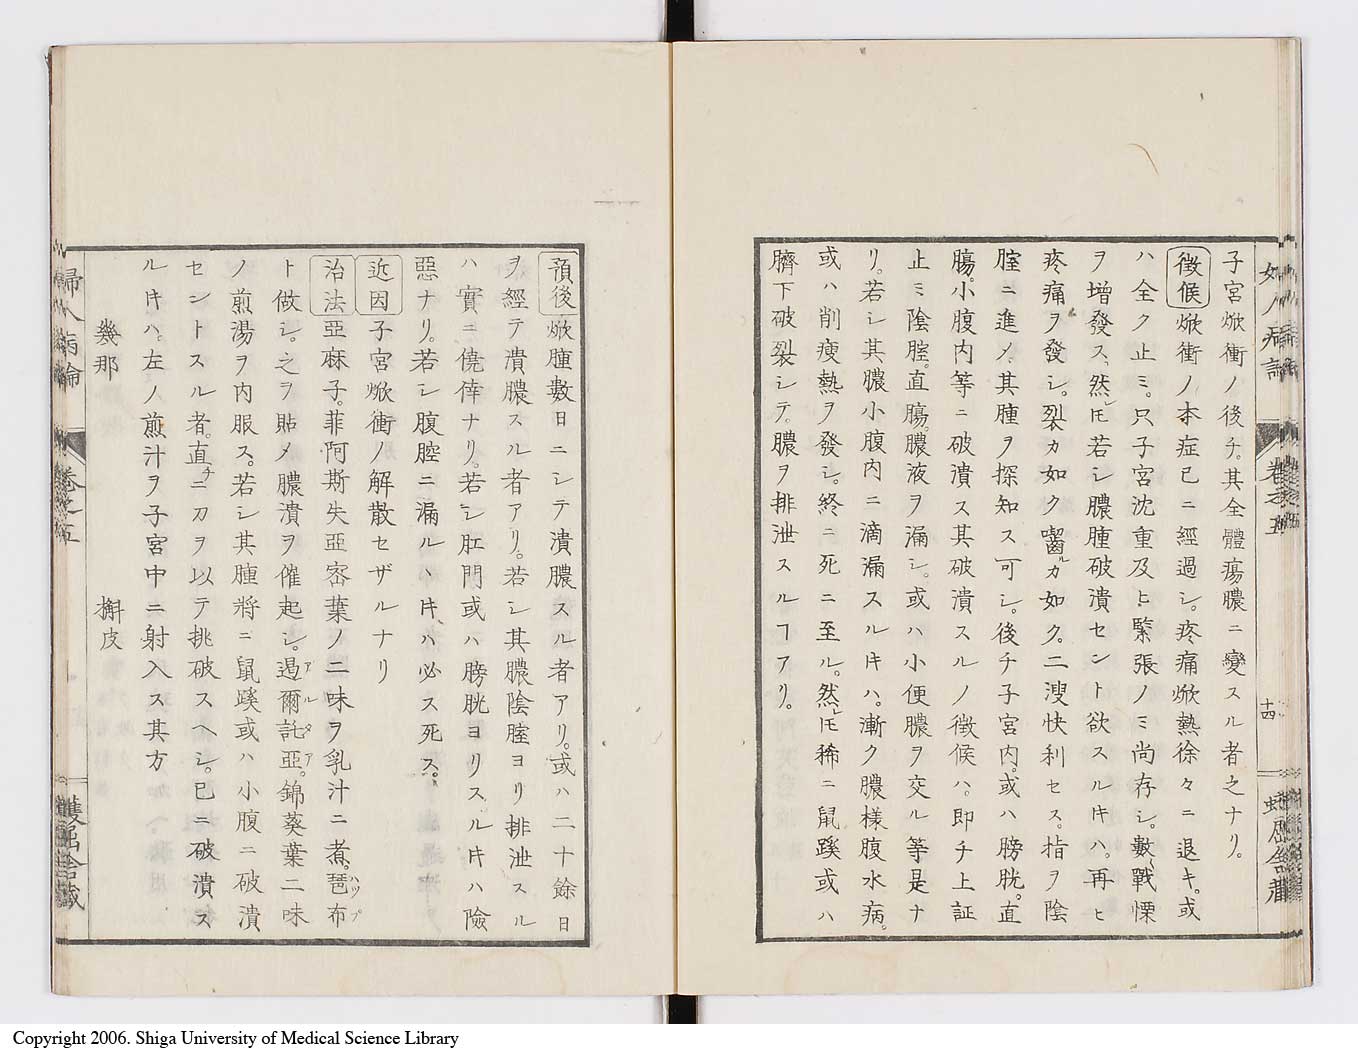 子宮焮衝ノ後チ。其全體瘍膿ニ變スル者之ナリ。
徴候焮衝ノ本症已ニ經過シ。疼痛焮熱徐々ニ退キ。或
ハ全ク止ミ。只子宮沈重及ヒ緊張ノミ尚存シ。數〻戰慄
ヲ增發ス、然レ𪜈若シ膿腫破潰セント欲スル𬼀ハ。再ヒ
疼痛ヲ發シ。裂カ如ク嚙ルカ如ク。二溲快利セス。指ヲ陰
腟ニ進メ。其腫ヲ探知ス可シ。後チ子宮内。或ハ膀胱。直
腸。小腹内等ニ破潰ス其破潰スルノ徴候ハ。即チ上証
止ミ陰腟。直腸。膿液ヲ漏シ。或ハ小便膿ヲ交ル等是ナ
リ。若シ其膿小腹内ニ滴漏スル𬼀ハ。漸ク膿様腹水病。
或ハ削瘦熱ヲ發シ。終ニ死ニ至ル。然レ𪜈稀ニ鼠蹊或ハ
臍下破裂シテ。膿ヲ排泄スルヿアリ。
婦人病論 卷之五 十四
預後焮腫數日ニシテ潰膿スル者アリ。或ハ二十餘日
ヲ經テ潰膿スル者アリ。若シ其膿陰腟ヨリ排泄スル
ハ實ニ僥倖ナリ。若シ肛門或ハ膀胱ヨリスル𬼀ハ險
惡ナリ。若シ腹腔ニ漏ル𬼀ハ必ス死ス。
近因子宮焮衝ノ解散セザルナリ
治法亞麻子。菲阿斯失亞宻葉ノ二味ヲ乳汁ニ煮。琶布ハップ
ト做シ。之ヲ貼メ膿潰ヲ催起シ。過爾託亞アルタア。錦葵葉二味
ノ煎湯ヲ内服ス。若シ其腫將ニ鼠蹊或ハ小腹ニ破潰
セントスル者。直チニ刀ヲ以テ挑破スヘシ。已ニ破潰ス
ル𬼀ハ。左ノ煎汁ヲ子宮中ニ射入ス其方
幾那 槲皮
婦人病論 卷之五 蠖屈舍藏